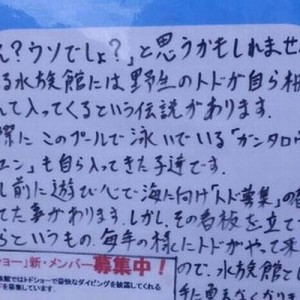 ん?ウソでしょ?」と思うかもしれませ
る水族館には野生のトドが自ら柵
んで入ってくるという伝説があります。
際にこのプールで泳いでいる「ガンタロウ
ュン」も自ら入ってきた子達です。
し前に遊び心で海に向け「トド募集」の
てた事があります。しかし、その看板を立て
らというもの、毎年の様にトドがやって来
ので、水族館とし
ショー」新・メンバー募集中!
族館ではトドショーで豪快なダイビングを披露してくれる
ドを募集しています